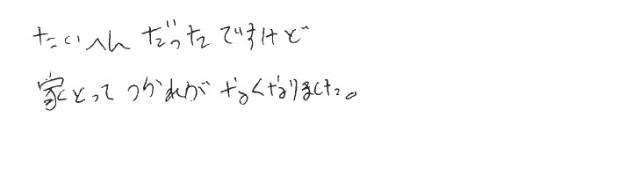 たいへんだったですけど
家とってつかれがなくなりました。